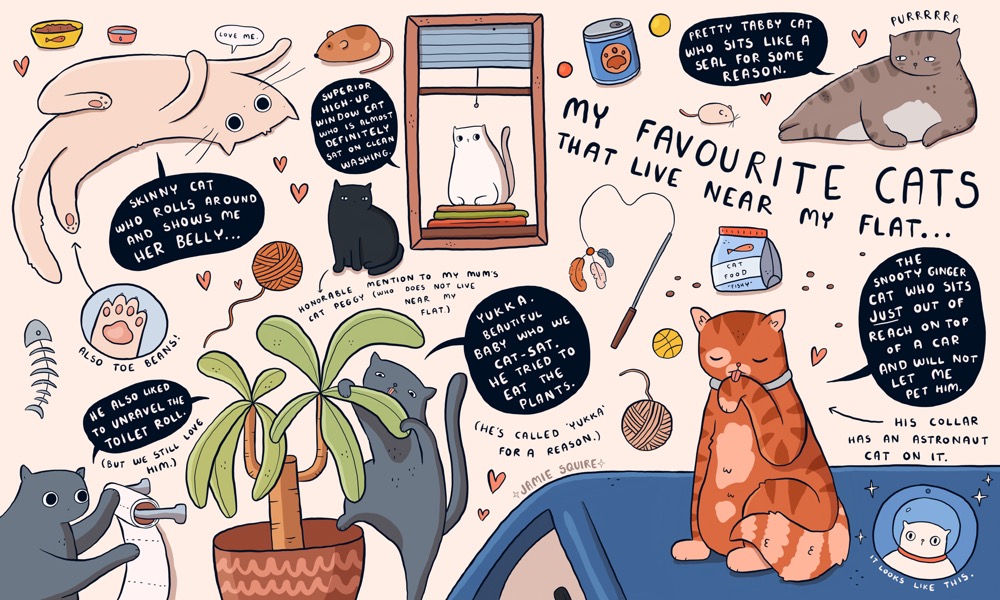 MY FAVOURITE CATS
THAT LIVE NEAR MY FLAT...
LOVE ME.
SKINNY CAT
WHO ROLLS AROUND
AND SHOWS ME
HER BELLY...
ALSO TOE BEANS!
SUPERIOR
HIGH-UP
WINDOW CAT
WHO IS ALMOST
DEFINITELY
SAT ON CLEAN
WASHING.
HONORABLE MENTION TO MY MUM'S
CAT PEGGY (WHO DOES NOT LIVE
NEAR MY
FLAT.)
PRETTY TABBY CAT
WHO SITS LIKE A
SEAL FOR SOME
REASON.
PURRRRRR
CAT
FOOD
"FISHY"
YUKKA.
BEAUTIFUL
BABY WHO WE
CAT-SAT.
HE TRIED TO
EAT THE
PLANTS.
(HE'S CALLED 'YUKKA'
FOR A REASON.)
HE ALSO LIKED
TO UNRAVEL THE
TOILET ROLL.
(BUT WE STILL LOVE
HIM.)
THE
SNOOTY GINGER
CAT WHO SITS
JUST OUT OF
REACH ON TOP
OF A CAR
AND WILL NOT
LET ME
PET HIM.
HIS COLLAR
HAS AN ASTRONAUT
CAT ON IT.
IT LOOKS LIKE THIS.
JAMIE SQUIRE